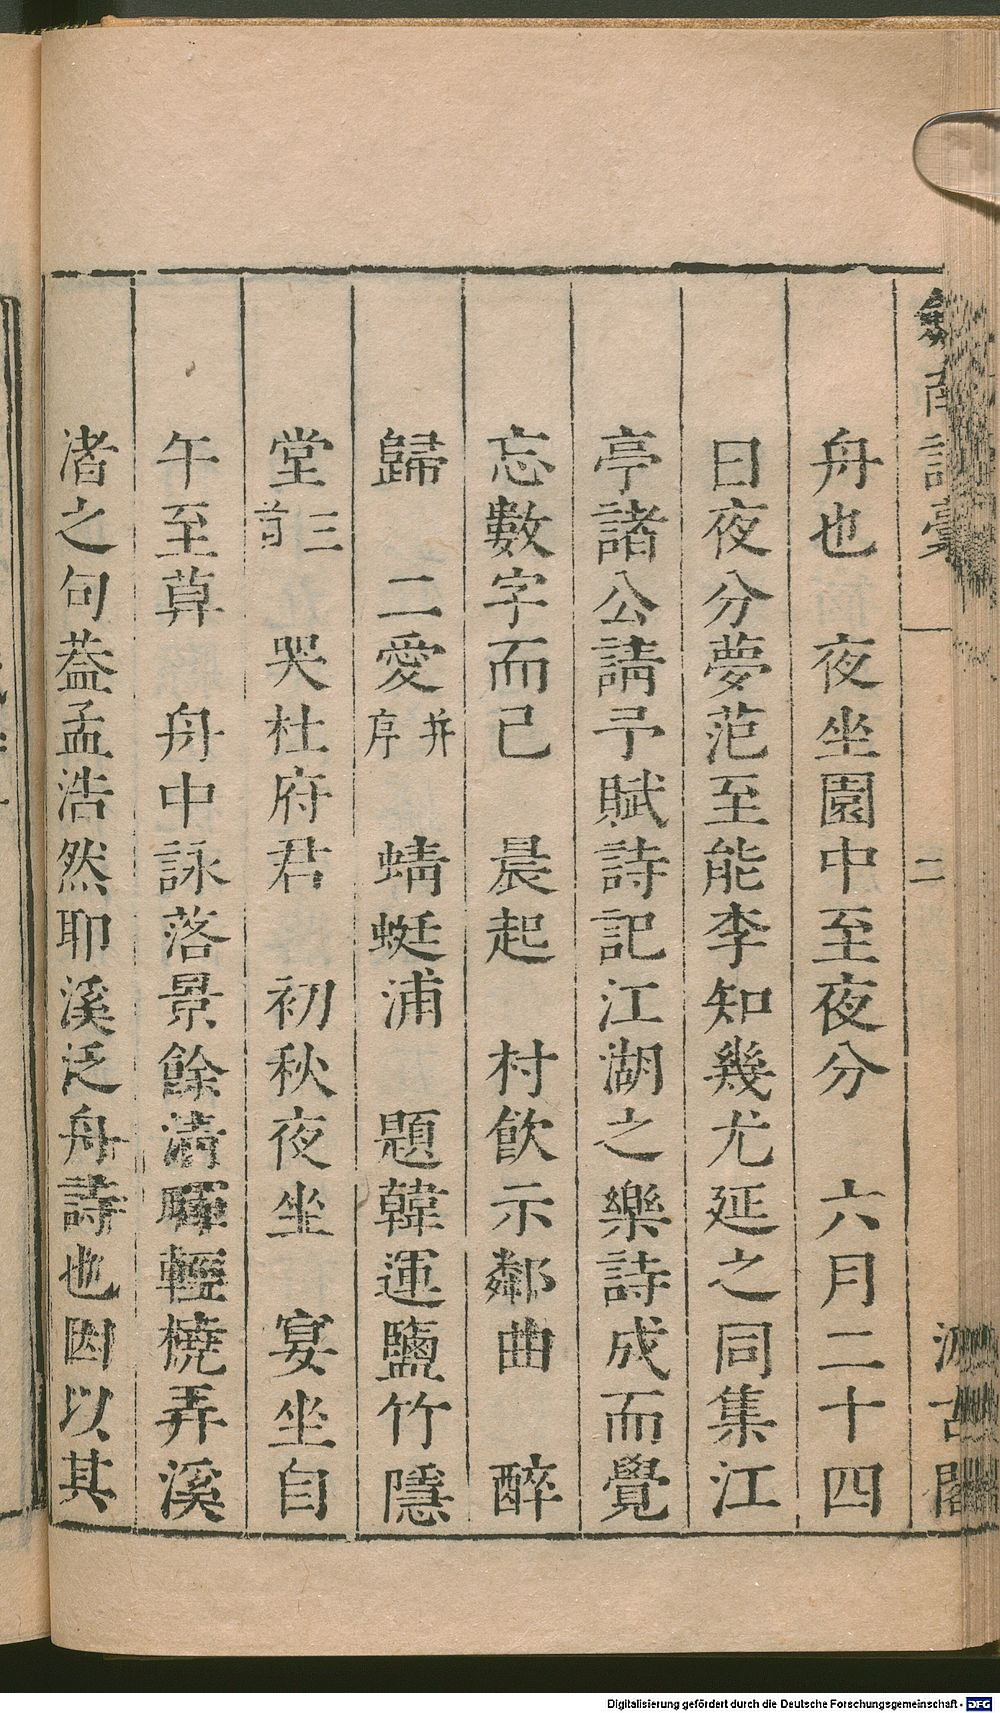 劒南詩藁
二
汲古閣
舟也　夜坐園中至夜分　六月二十四
日夜分夢范至能李知幾尤延之同集江
亭諸公請予賦詩記江湖之樂詩成而覺
忘數字而已　晨起　村飲示鄰曲　醉
歸　二愛并序　蜻蜓浦　題韓運鹽竹隱
堂三首　哭杜府君　初秋夜坐　宴坐自
午至莫　舟中詠落景餘清暉輕橈弄溪
渚之句葢孟浩然耶溪泛舟詩也因以其
Digitalisierung gefördert durch die Deutsche Forschungsgemeinschaft - DFG